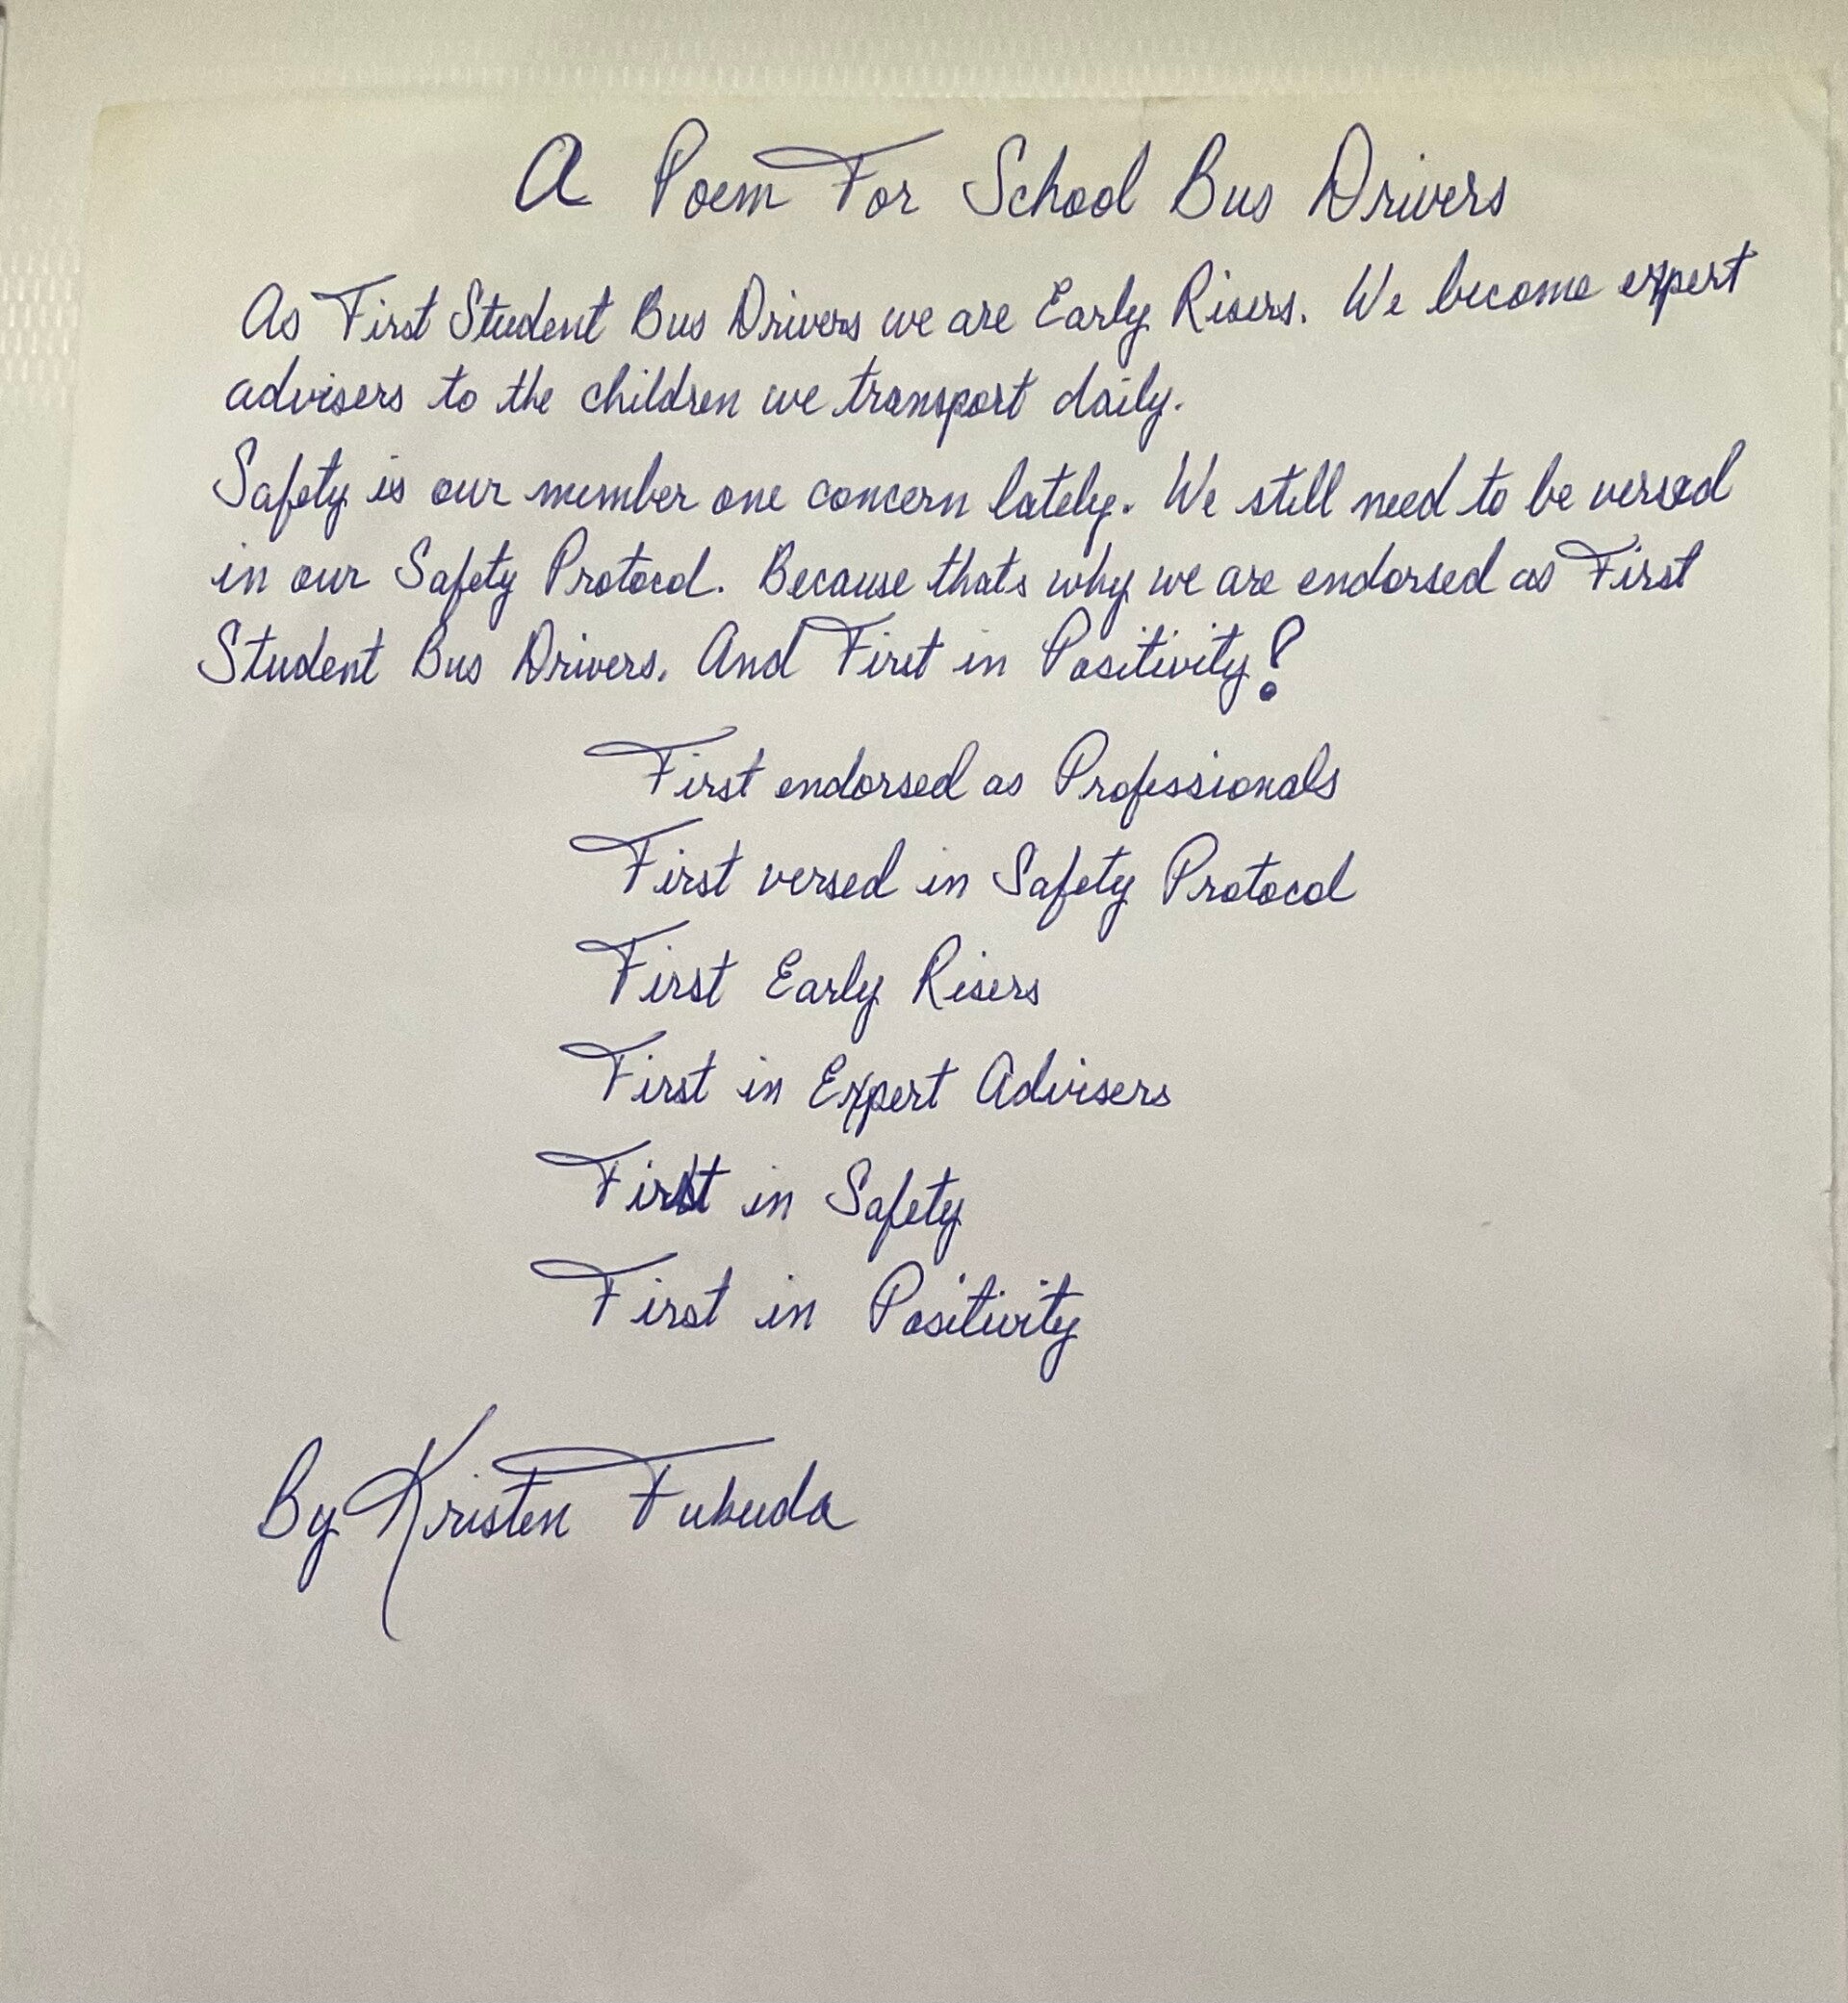 A Poem For School Bus Drivers
As First Student Bus Drivers we are Early Risers. We become expert
advisers to the children we transport daily.
Safety is our number one concern lately. We still need to be versed
in our Safety Protocol. Because thats why we are endorsed as First
Student Bus Drivers. And First in Positivity!
First endorsed as Professionals
First versed in Safety Protocol
First Early Risers
First in Expert Advisers
First in Safety
First in Positivity
By Kristen Fukuda